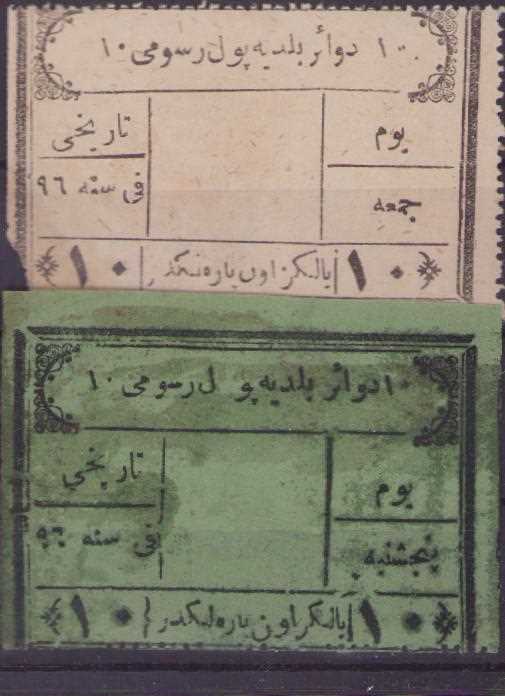 ١٠ دوائر بلديه پول رسومى ١٠
يوم
جمعه
تاريخى
فى سنه ٩٦
١٠ يالكز اون پاره لكدر ١٠
١٠ دوائر بلديه پول رسومى ١٠
يوم
پنجشنبه
تاريخى
فى سنه ٩٦
١٠ يالكز اون پاره لكدر ١٠